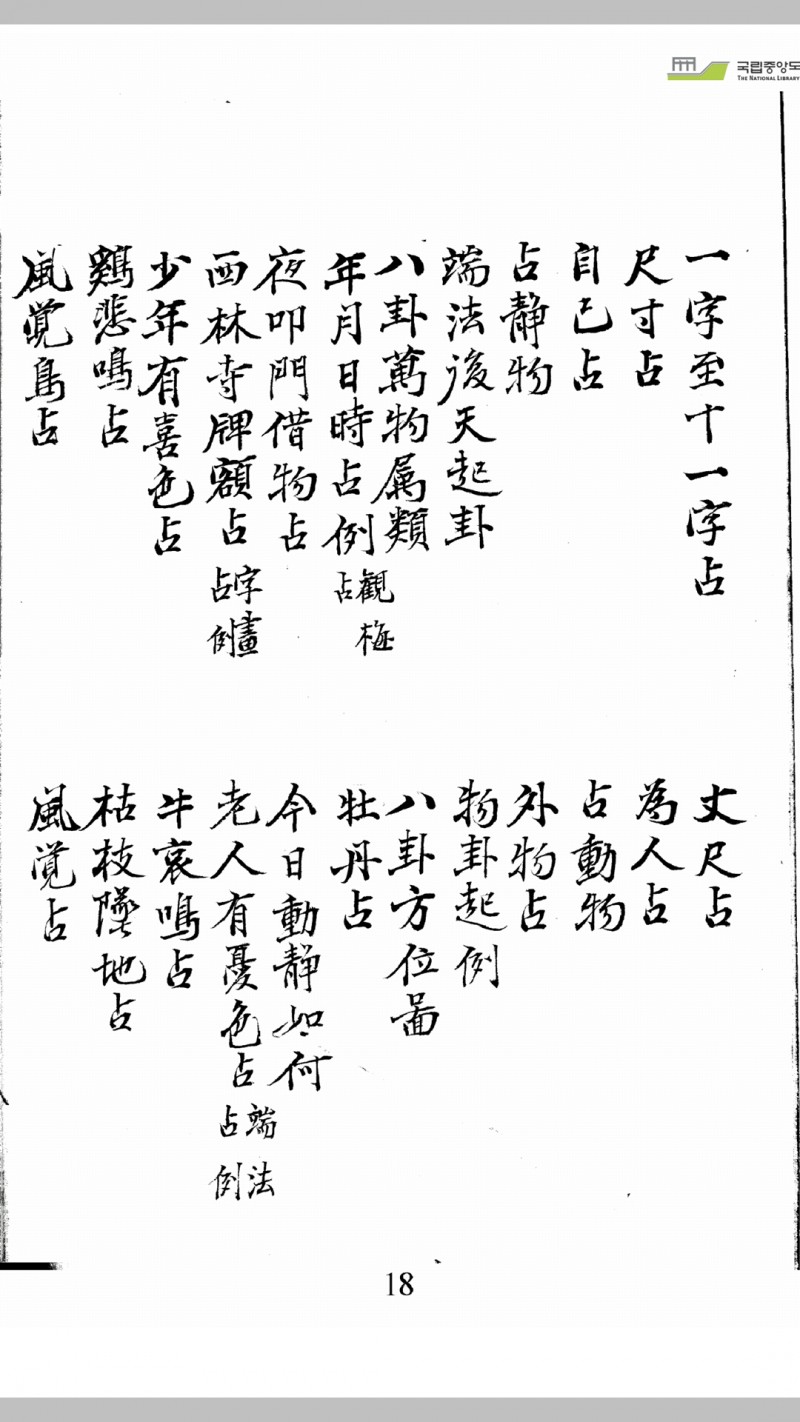 국립중앙도
THE NATIONAL LIBRARY
一字至十一字占
丈尺占
尺寸占
為人占
自己占
占動物
占静物
外物占
端法後天起卦
物卦起例
八卦萬物属類
八卦方位啚
年月日時占例 觀梅占
牡丹占
夜叩門借物占
今日動静如何
西林寺牌額占 字畫占例
老人有憂色占 端法占例
少年有喜色占
牛哀鳴占
鷄悲鳴占
枯枝墜地占
風覺鳥占
風覺占
18